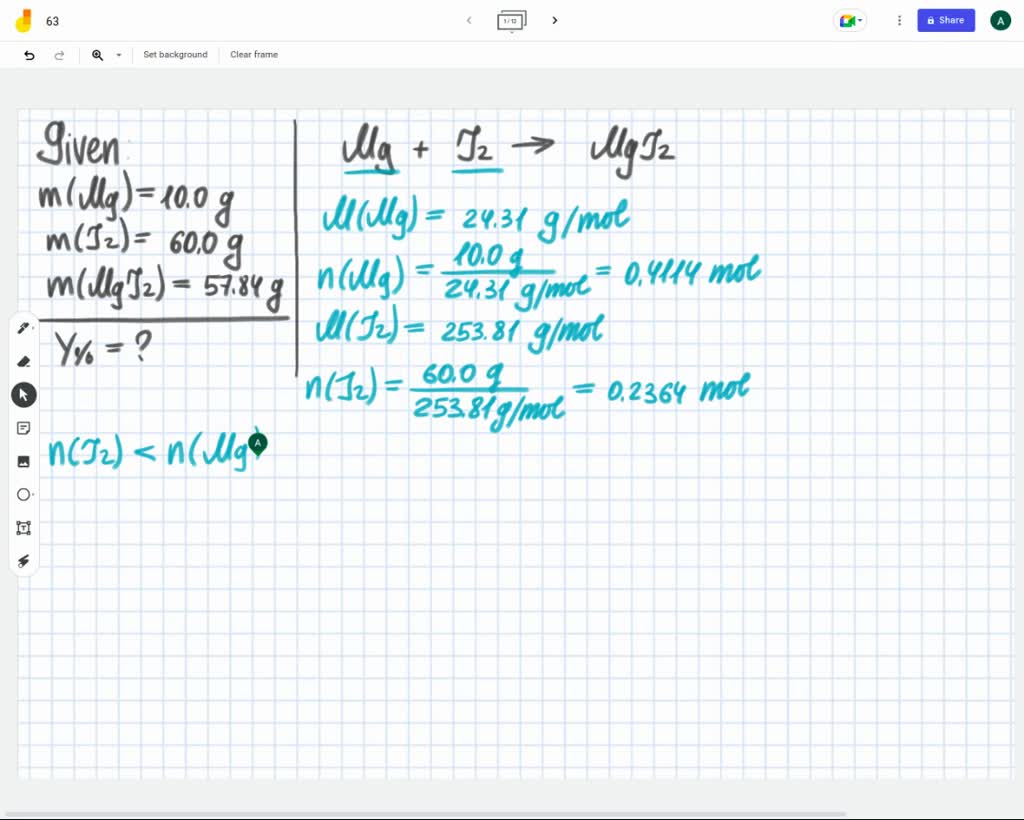 63
1/12
Share
A
Set background
Clear frame
Given:
m(Mg) = 10.0 g
m(I2) = 60.0 g
m(MgI2) = 57.84 g
Y% = ?
Mg + I2 → MgI2
M(Mg) = 24.31 g/mol
n(Mg) = 10.0 g / 24.31 g/mol = 0.4114 mol
M(I2) = 253.81 g/mol
n(I2) = 60.0 g / 253.81 g/mol = 0.2364 mol
n(I2) < n(Mg)
A